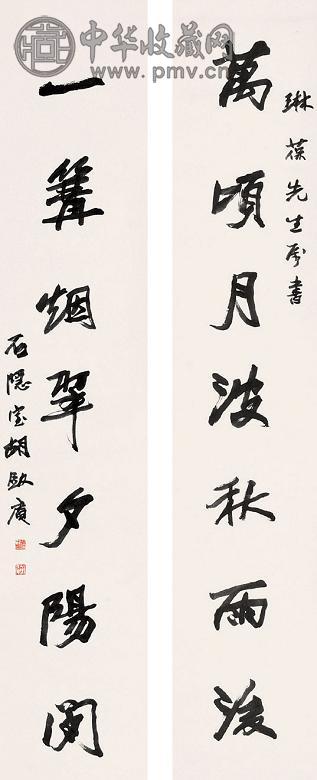 中华收藏网
www.pmv.cn
琳葆先生属書
萬頃月波秋雨後
一篝烟翠夕陽間
石隱室胡